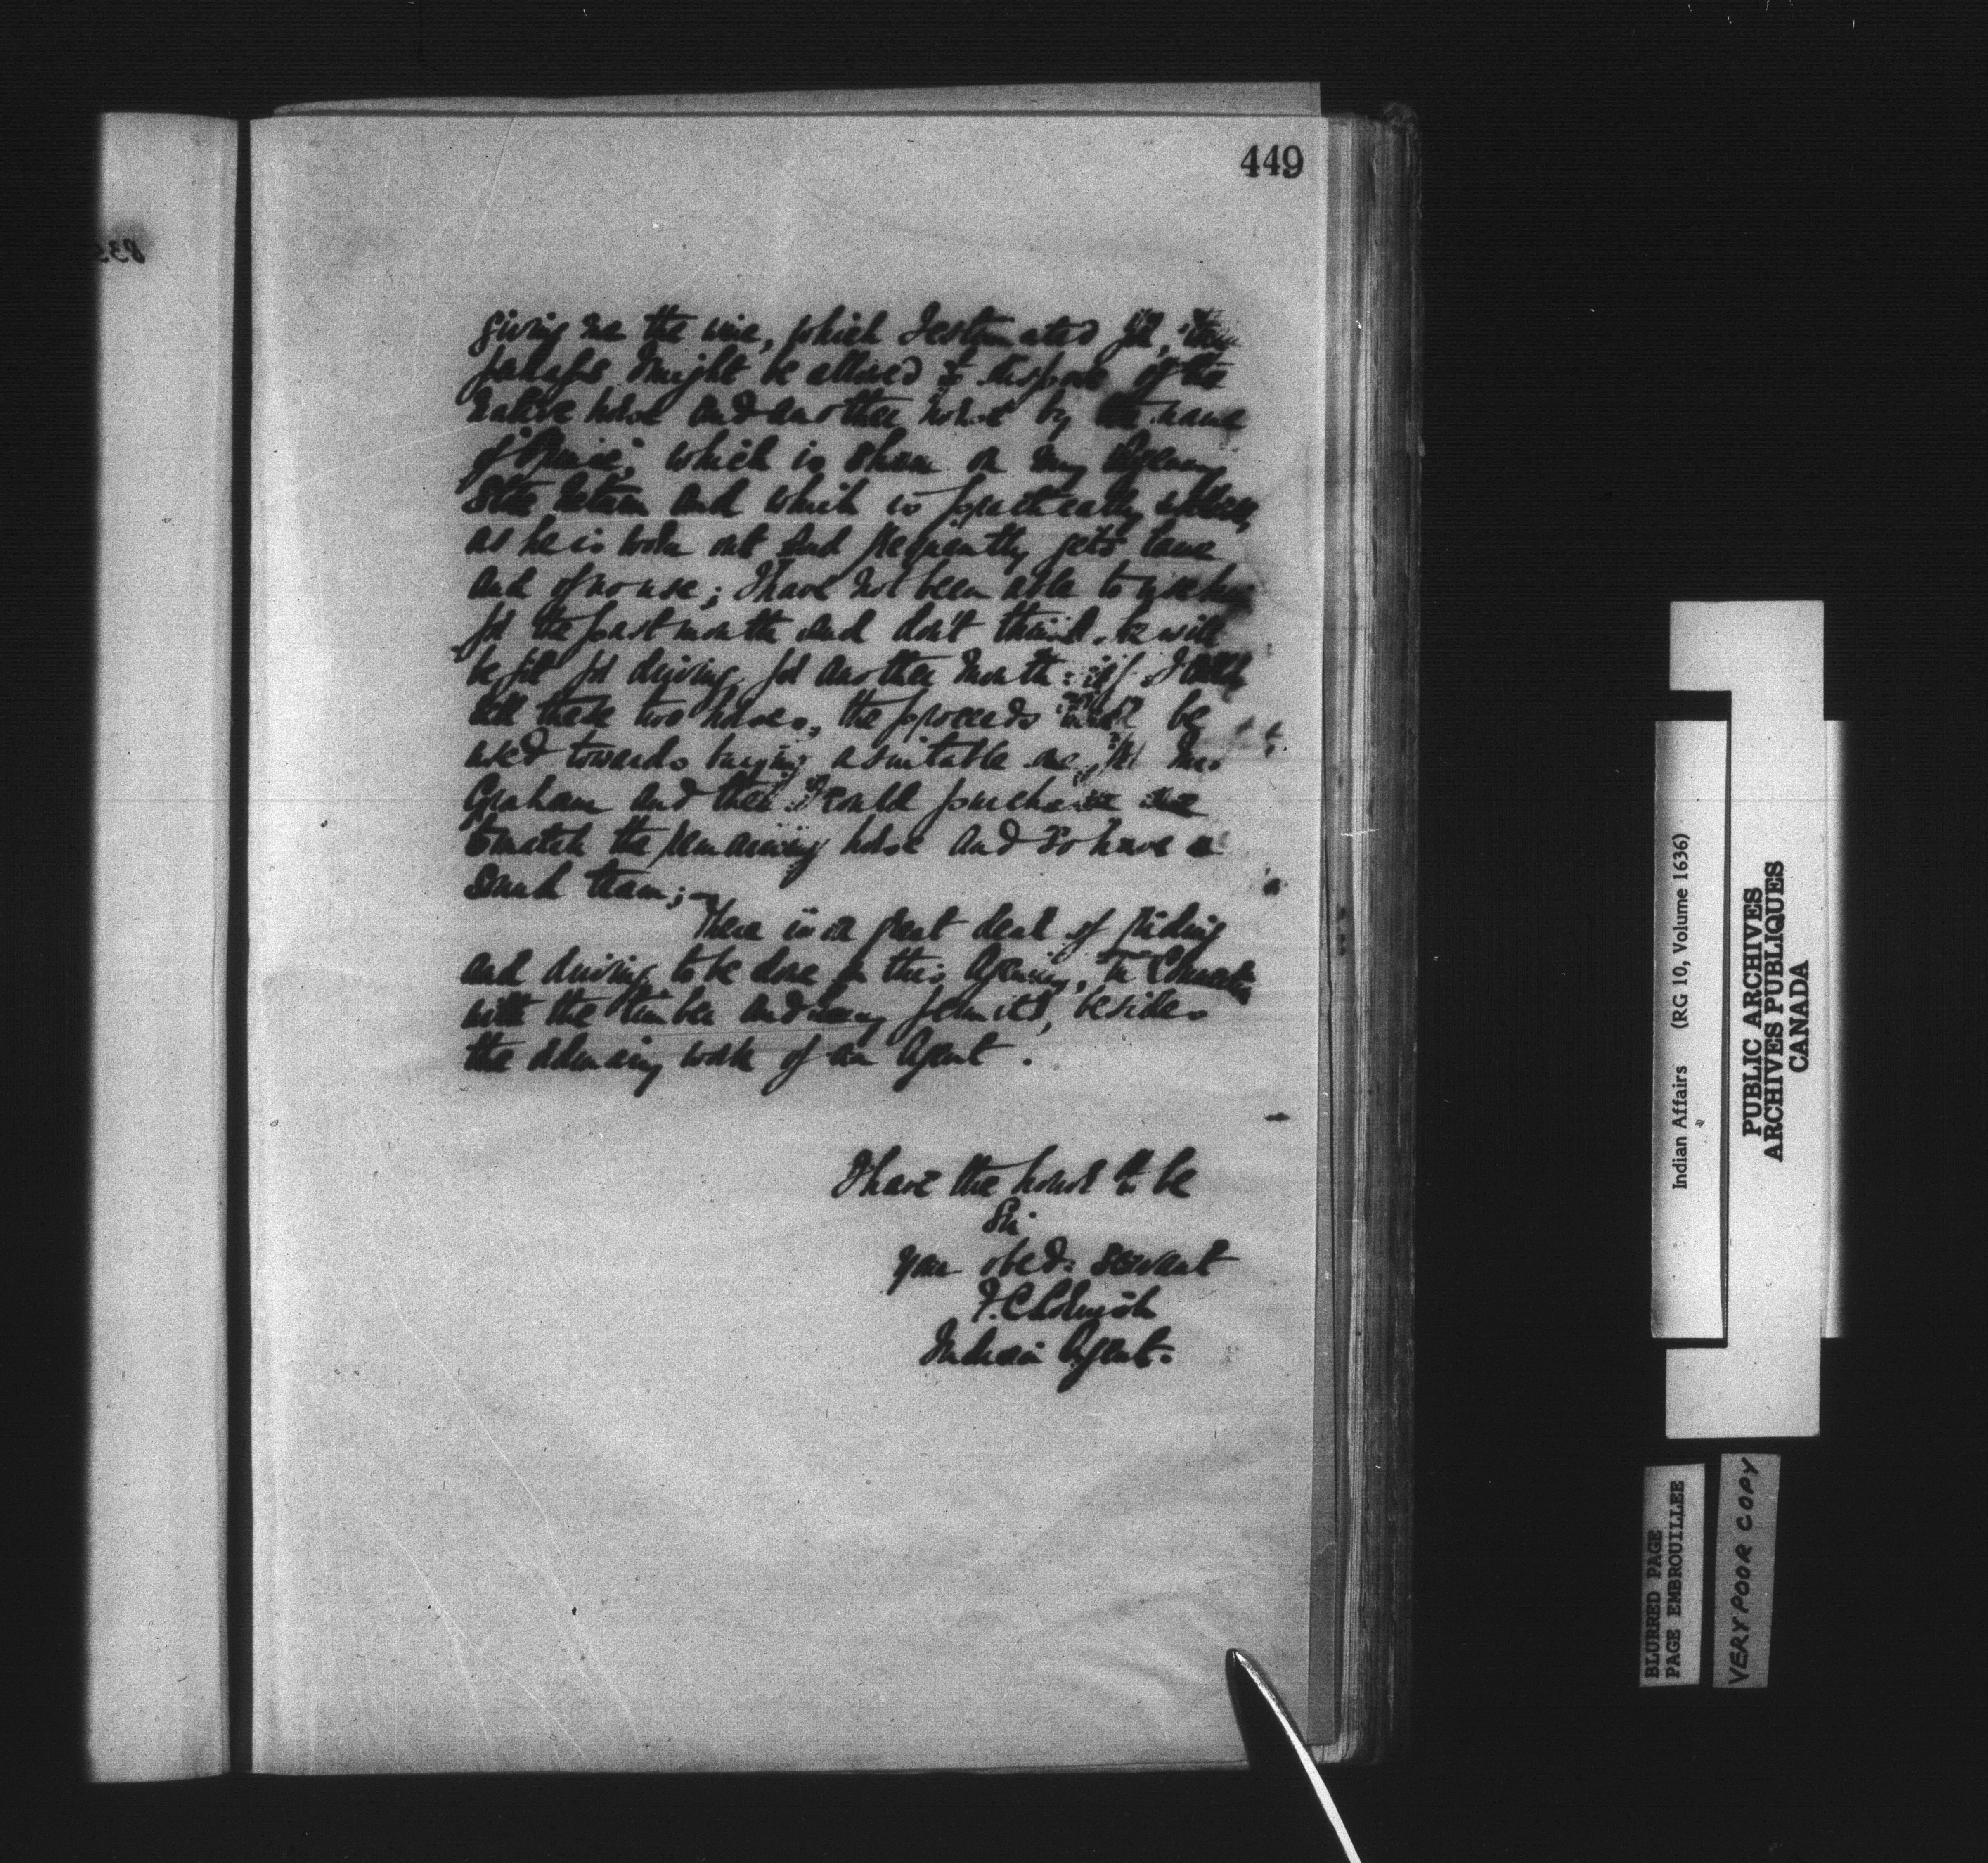 449
giving me the wire, which I estimated for, then
perhaps I might be allowed to dispose of the
native horse and another horse by the name
of "Prince", which is shown on my Agency
return and which is practically useless,
as he is worn out and frequently gets lame
and of no use; I have not been able to use him
for the past month and don't think he will
be fit for driving for another month: if I could
sell these two horses, the proceeds be
used towards buying a suitable one for Mr.
Graham and then I could purchase one
to match the remaining horse and so have a
sound team;-
There is a great deal of riding
and driving to be done in this Agency, in connection
with the timber and hay permits, besides
the ordinary work of an Agent.
I have the honor to be
Sir
your obed. servant
Indian Agent.
Indian Affairs (RG 10, Volume 1636)
PUBLIC ARCHIVES
ARCHIVES PUBLIQUES
CANADA
BLURRED PAGE
PAGE EMBROUILLEE
VERY POOR COPY